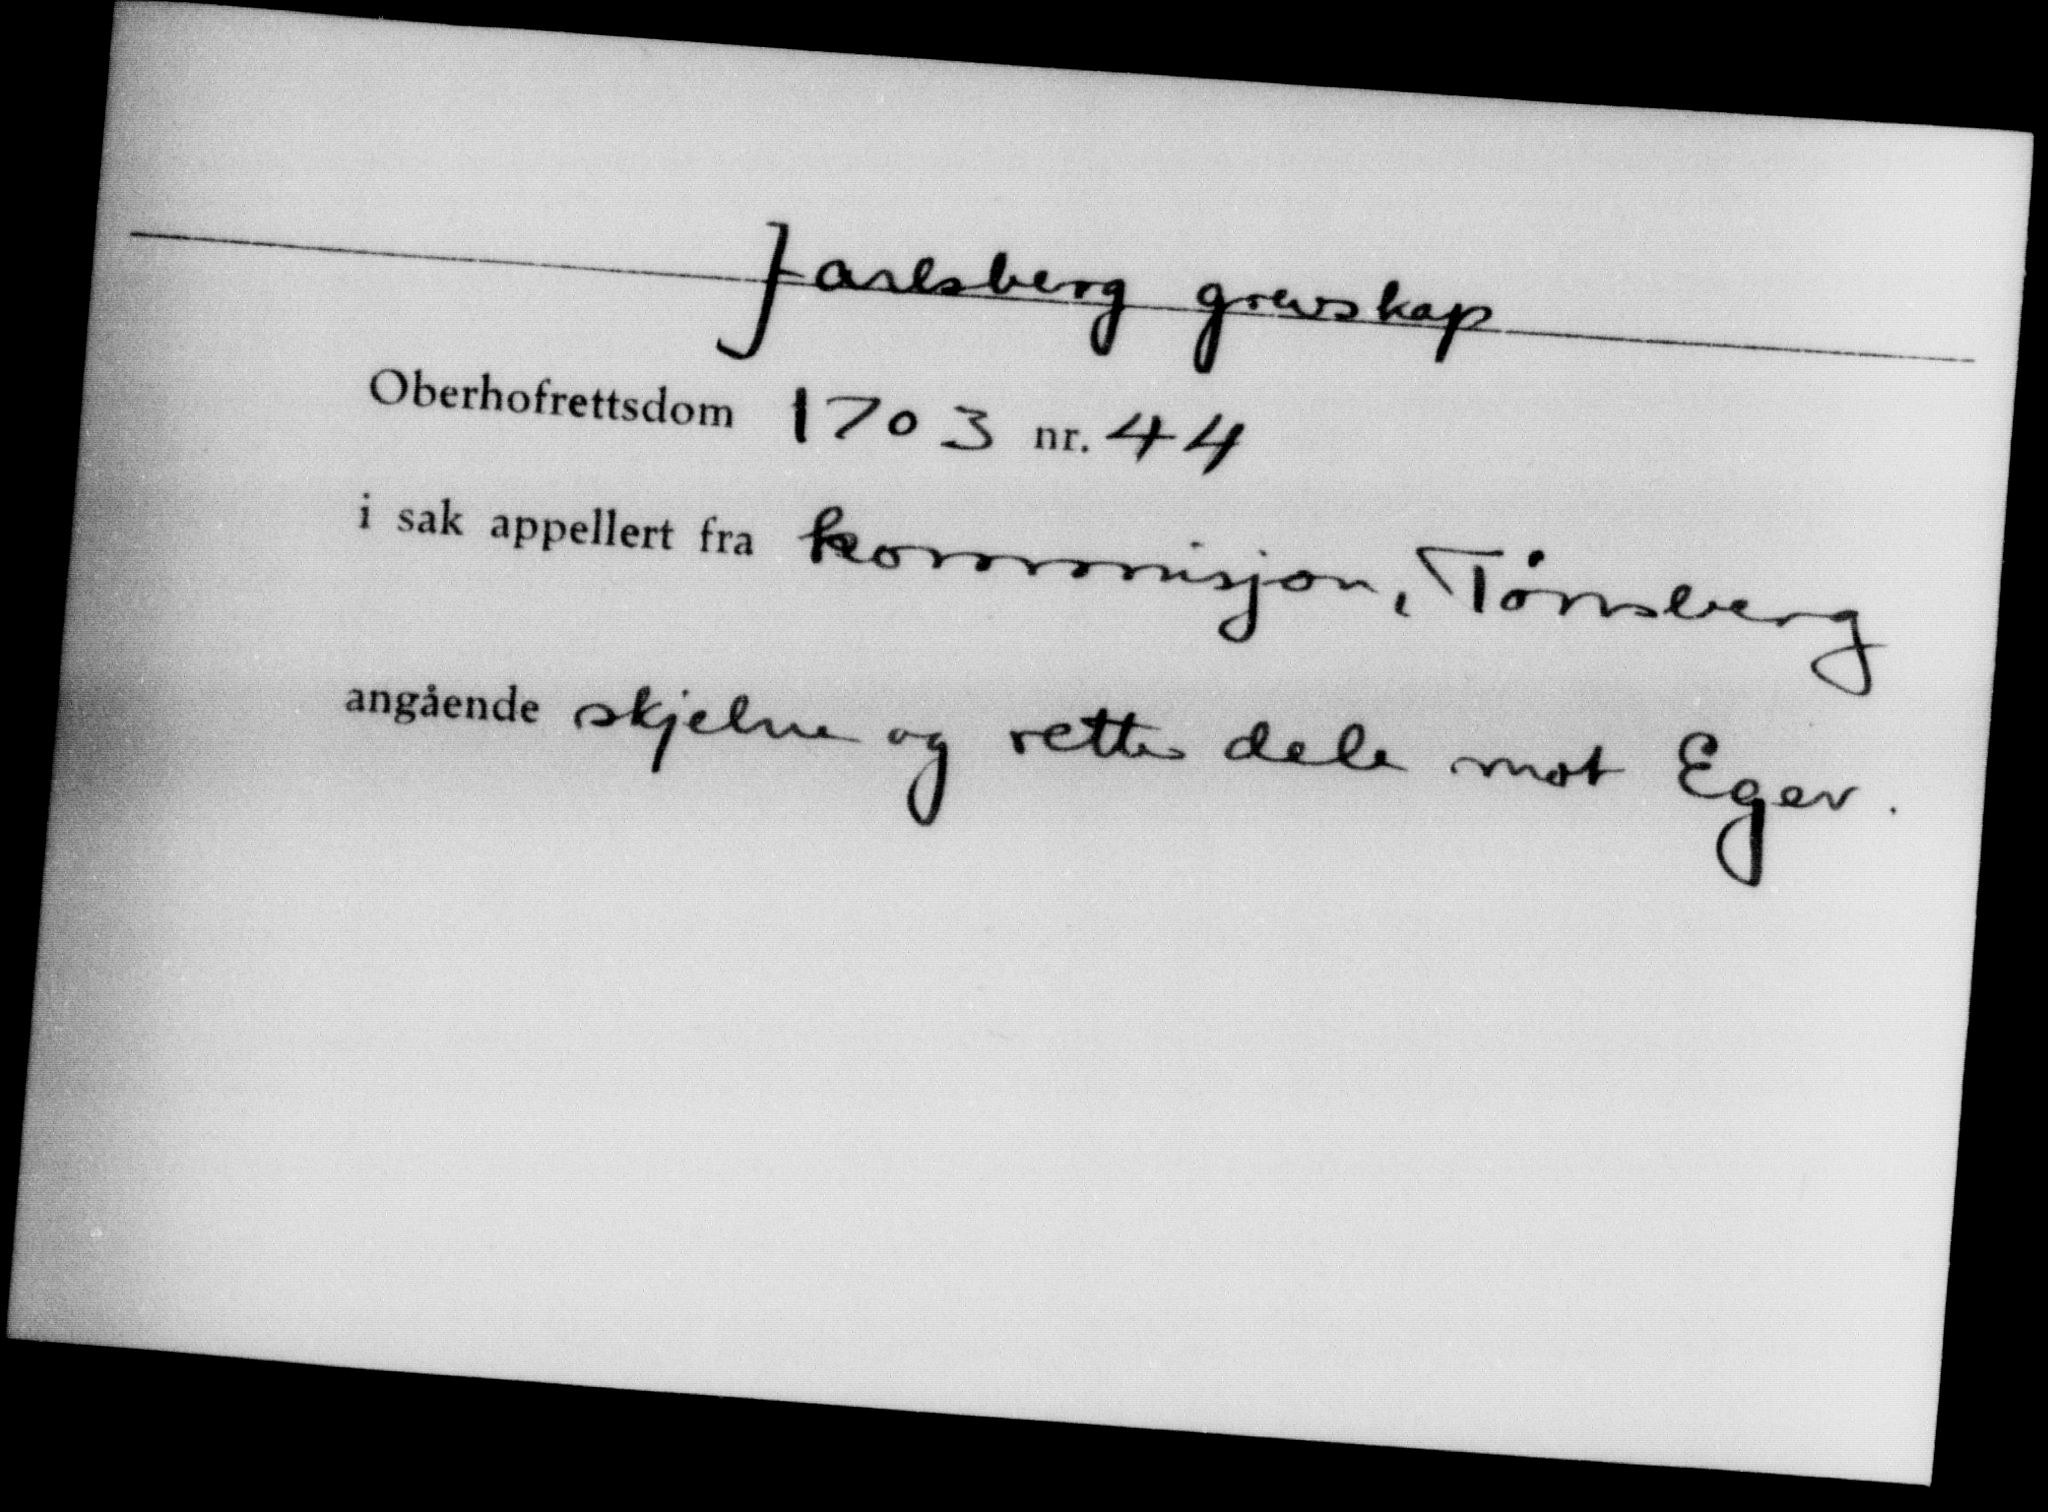 Jarlsberg grevskap
Oberhofrettsdom 1703 nr. 44
i sak appellert fra kommisjon, Tønsberg
angående skjelne og rette dele mot Eger.